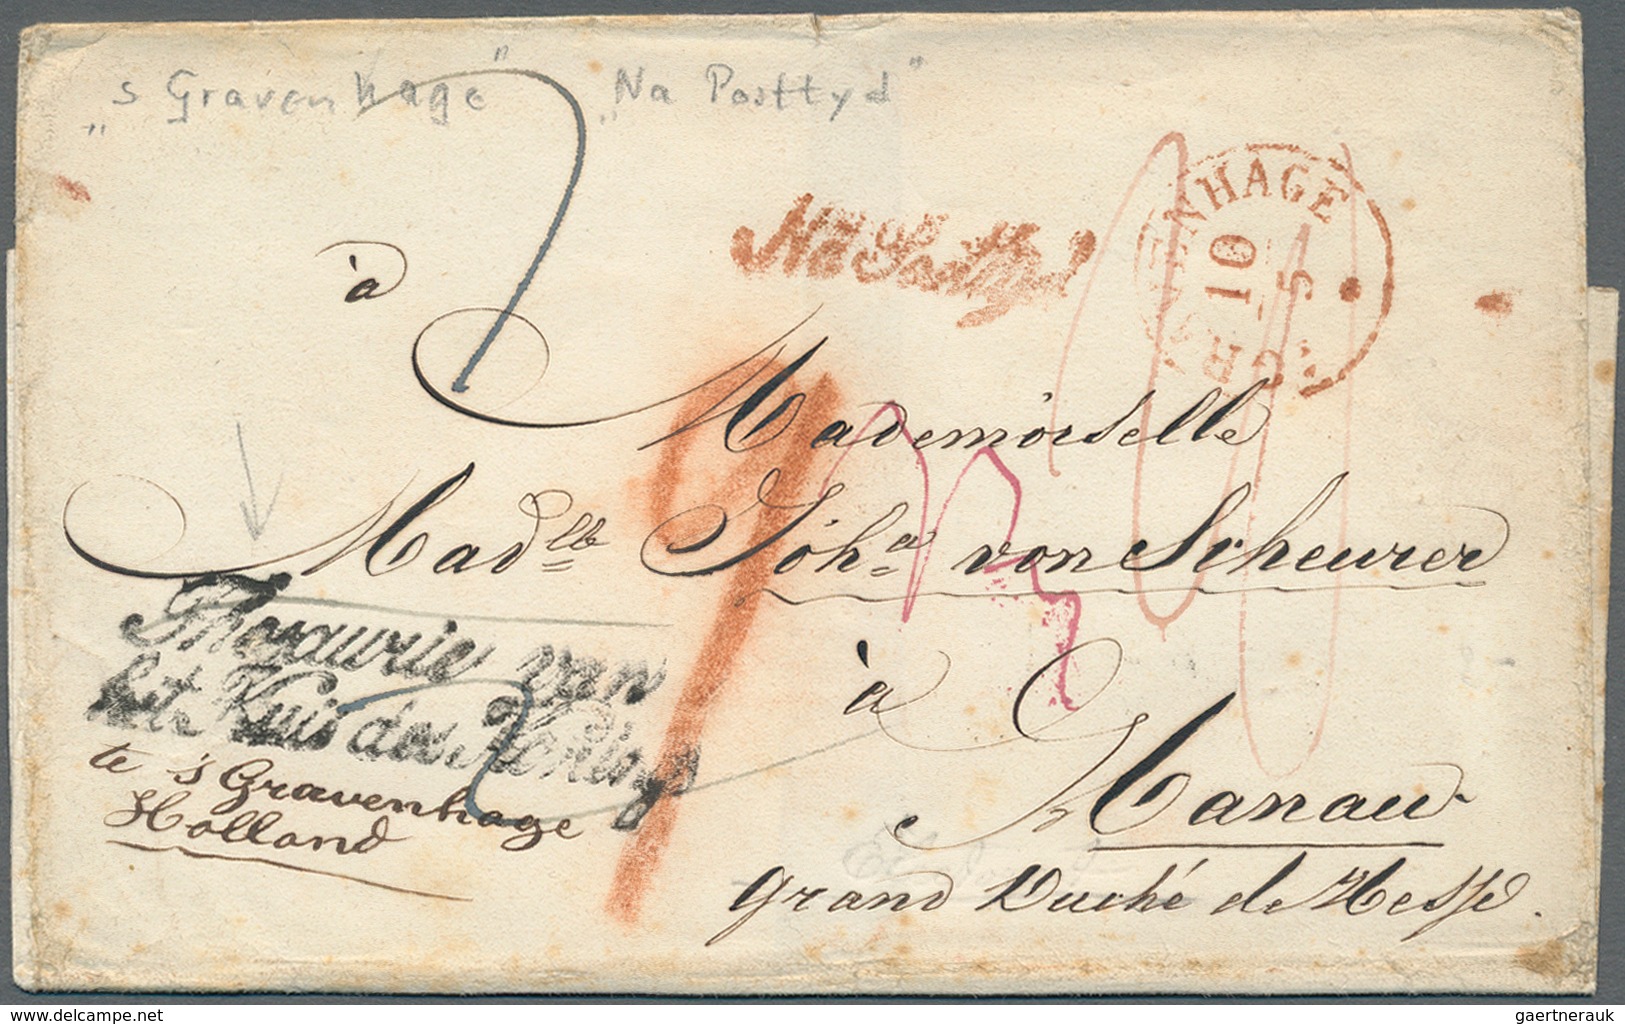 „s Gravenhage" „Na Posttyd"
Na Posttyd
'S GRAVENHAGE
10
5
à
Mademoiselle
Mad<sup>lle</sup> Joh<sup>a</sup> von Scheurer
à
Hanau
Grand Duché de Hesse.
Thesaurie van
het Huis des Konings
te 's Gravenhage
Holland
www.delcampe.net
gaertnerauk